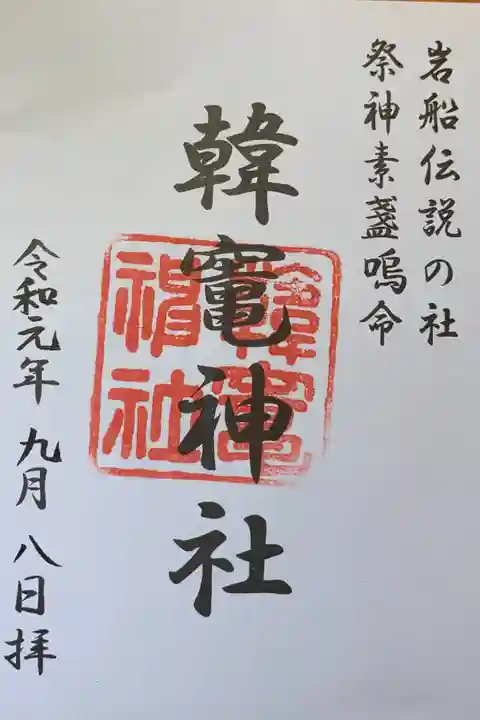 岩船伝説の社
祭神素盞嗚命
韓竈神社
令和元年 九月 八日 拝
韓竈
神社